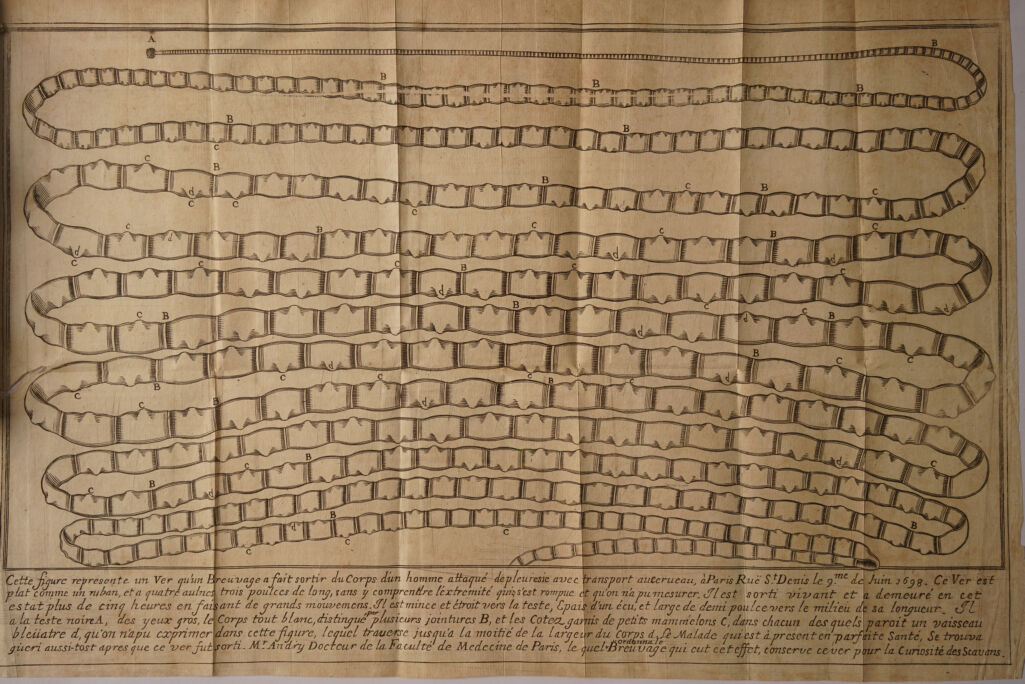 Cette figure represente un Ver qu'un Breuvage a fait sortir du Corps d'un homme attaqué de pleuresie avec transport au cerueau, à Paris Ruë S.t Denis le 9.me de Juin 1698. Ce Ver est
plat comme un ruban, et a quatre aulnes trois poulces de long, sans y comprendre l'extremité qui s'est rompue et qu'on n'a pu mesurer. Il est sorti vivant et a demeuré en cet
estat plus de cinq heures en faisant de grands mouvemens. Il est mince et étroit vers la teste, épais d'un écu, et large de demi poulce vers le milieu de sa longueur. Il
a la teste noire A, des yeux gros, le Corps tout blanc, distingué par plusieurs jointures B, et les Cotez garnis de petits mammelons C, dans chacun des quels paroit un vaisseau
bleüatre d, qu'on n'a pu exprimer dans cette figure, lequel traverse jusqu'a la moitié de la largeur du Corps d, Le Malade qui est à present en parfaite Santé, Se trouva
gueri aussi-tost apres que ce ver fut sorti. M.r Andry Docteur de la Faculté de Medecine de Paris, le quel ordonna le Breuvage qui eut cet effet, conserve ce ver pour la Curiosité des Scavans.